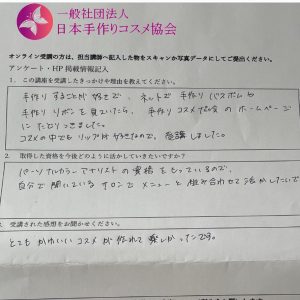 一般社団法人
日本手作りコスメ協会
オンライン受講の方は、担当講師へ記入した物をスキャンか写真データにしてご提出ください。
アンケート・HP掲載情報記入
1. この講座を受講したきっかけや理由を教えてください。
手作りすることが好きで、ネットで手作りバスボムや
手作りリボンを見ていたら、手作りコスメ協会のホームページ
にたどりつきました。
コスメの中でもリップが好きなので、受講しました。
2. 取得した資格を今後どのように活かしていきたいですか?
パーソナルカラーアナリストの資格をもっているので、
自分で開いているサロンでメニューと組み合わせて活かしたいで
3. 受講された感想をお聞かせください。
とてもかわいいコスメが作れて楽しかったです。